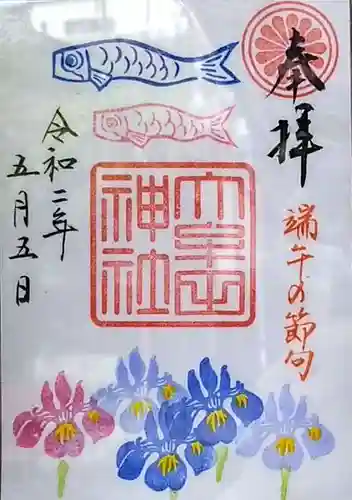 奉拝
端午の節句
神社
令和二年
五月五日